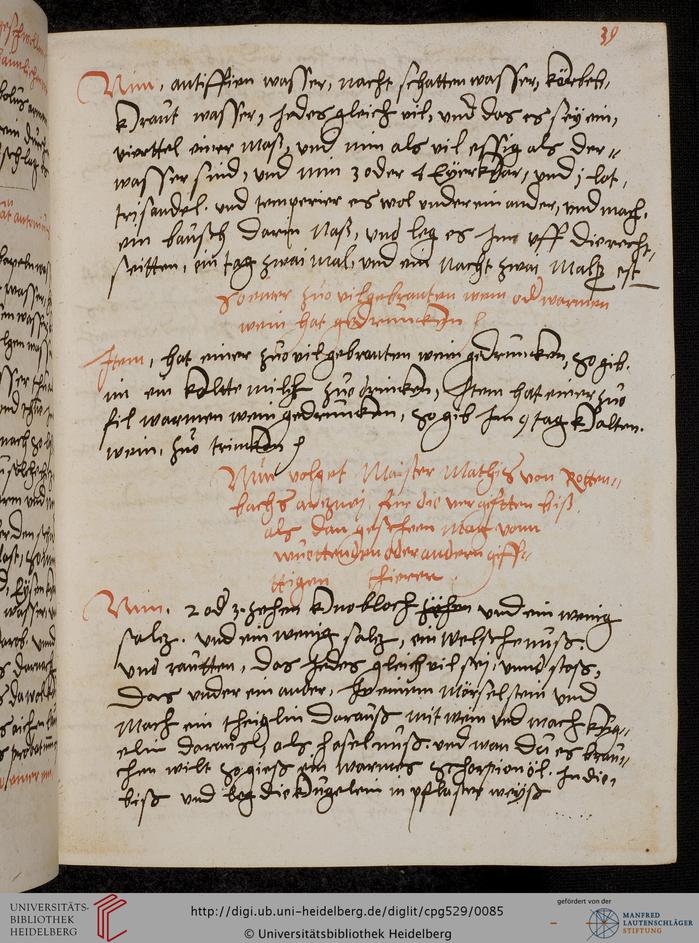 39
Nim, antiffien wasser, nacht schatten wasser, körbel,
kraut wasser, Jedes gleich vil, und das es sey ein,
vierttel einer maß, und nim als vil essig als der
wasser sind, und nim 3 oder 4 Eyerklar, und j lot,
trisandel. und temperier es wol under ein ander, und mach,
ein bausch darin Naß, und leg es Im uff die recht
seitten, ein tag zwai mal, und ein Nacht zwai Maltz est
So einer zuo vil gebranten wein od warmen
wein hat gedruncken
Item, hat einer zuo vil gebranten wein gedruncken, So gib.
im ein koltte milch zuo drincken, Item hat einer zuo
fil warmen wein gedruncken, So gib Im 9 tag kalten.
wein, zuo trincken
Nun volget Maister Mathis von Rotten-
bachs artznei, für die vergifften biß,
als dan geschehen Mag vonn
wuettenden oder andern giff-
ttigen thieren
Nim. 2 od 3. zehen knobloch und ein wenig
saltz. und ein wenig saltz, ein welsche nuß.
und rautten, das Jedes gleich vil sei, unnd stoß,
Das under ein ander, In einem Mörsel stein und
Mach ein theiglin darauß mit wein und mach küg-
elin daraus, als haselnuß. und wan du es brau-
chen wilt so gieß ein warmes schorpionöl. In die,
biß und leg die kügelein in pflaster weyß
UNIVERSITÄTS-
BIBLIOTHEK
HEIDELBERG
http://digi.ub.uni-heidelberg.de/diglit/cpg529/0085
© Universitätsbibliothek Heidelberg
gefördert von der
MANFRED
LAUTENSCHLÄGER
STIFTUNG